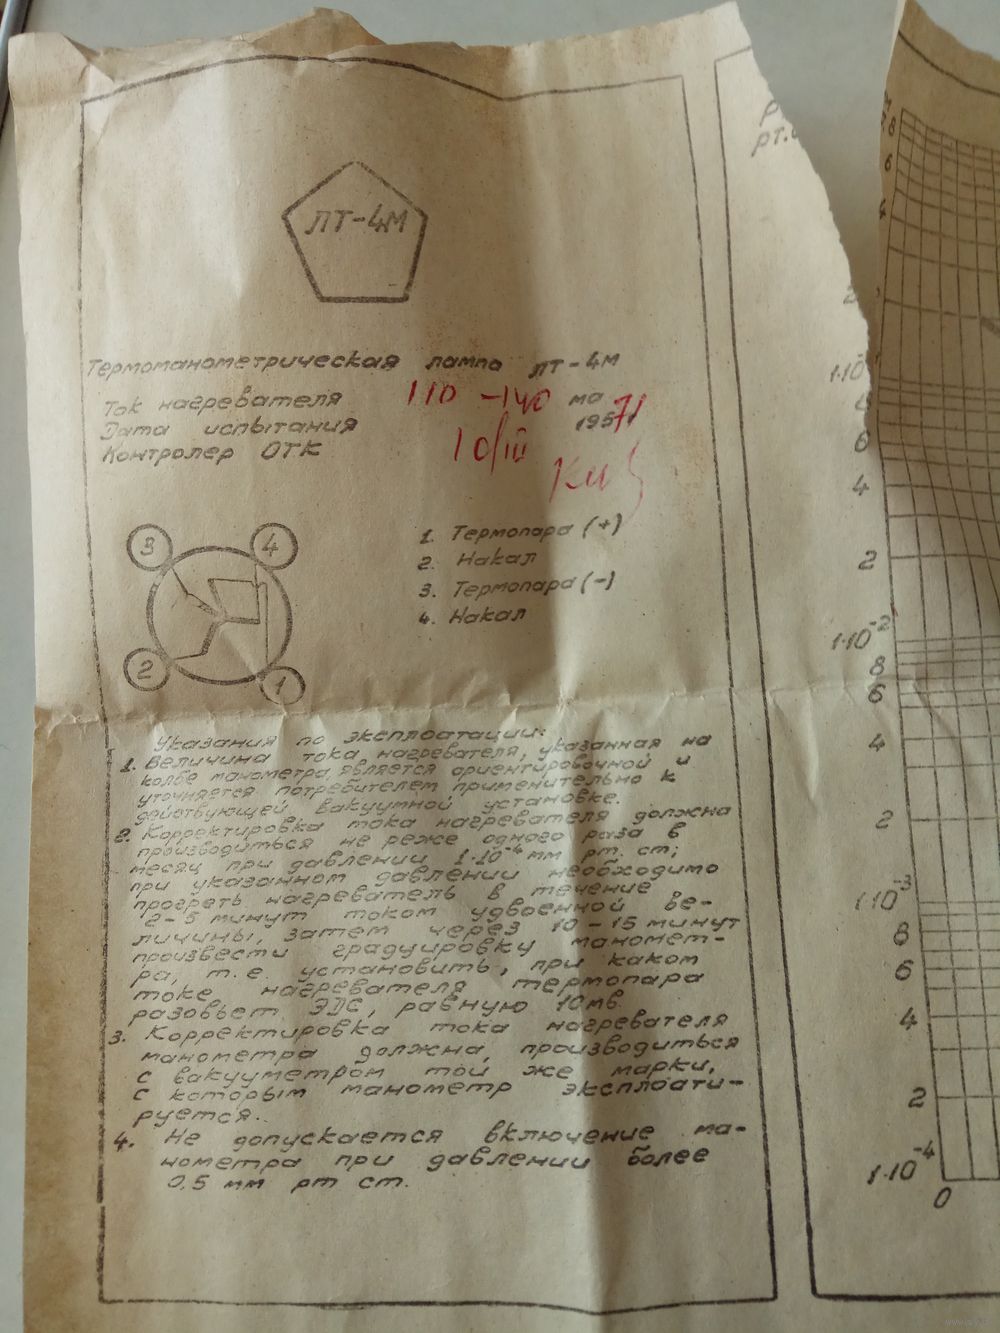 ЛТ-4М
Термоманометрическая лампа ЛТ-4М
Ток нагревателя 110-140 ма
Дата испытания 10/III 195 71
Контролер ОТК
3
4
2
1
1. Термопара (+)
2. Накал
3. Термопара (-)
4. Накал
Указания по эксплоатации:
1. Величина тока нагревателя, указанная на
колбе манометра, является ориентировочной и
уточняется потребителем применительно к
действующей вакуумной установке.
2. Корректировка тока нагревателя должна
производиться не реже одного раза в
месяц при давлении 1·10⁻⁴ мм рт. ст;
при указанном давлении необходимо
прогреть нагреватель в течение
2-5 минут током удвоенной ве-
личины, затем через 10-15 минут
произвести градуировку маномет-
ра, т.е. установить, при каком
токе нагревателя термопара
разовьет ЭДС, равную 10мв.
3. Корректировка тока нагревателя
манометра должна, производиться
с вакууметром той же марки,
с которым манометр эксплоати-
руется.
4. Не допускается включение ма-
нометра при давлении более
0,5 мм рт ст.
Р
рт.
2
1·10
6
4
2
1·10⁻²
8
6
4
2
1·10⁻³
8
6
4
2
1·10⁻⁴
0
8
6
4